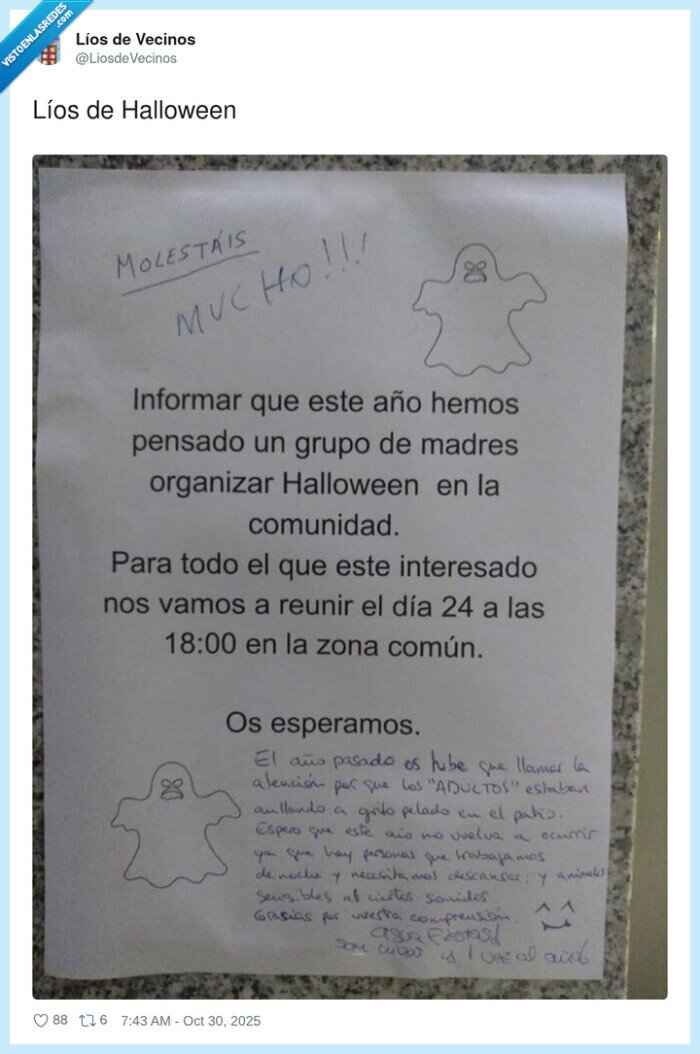 VISTOENLASREDES
.com
Líos de Vecinos
@LiosdeVecinos
Líos de Halloween
MOLESTÁIS
MUCHO!!!
Informar que este año hemos
pensado un grupo de madres
organizar Halloween en la
comunidad.
Para todo el que este interesado
nos vamos a reunir el día 24 a las
18:00 en la zona común.
Os esperamos.
El año pasado os tube que llamar la
atención por que los "ADULTOS" estaban
aullando a grito pelado en el patio.
Espero que este año no vuelva a ocurrir
ya que hay personas que trabajamos
de noche y necesitamos descansar; y animales
sensibles a sonidos
Gracias por vuestra comprensión.
agua Fiestas!
son 1 vez al año
88 6 7:43 AM - Oct 30, 2025